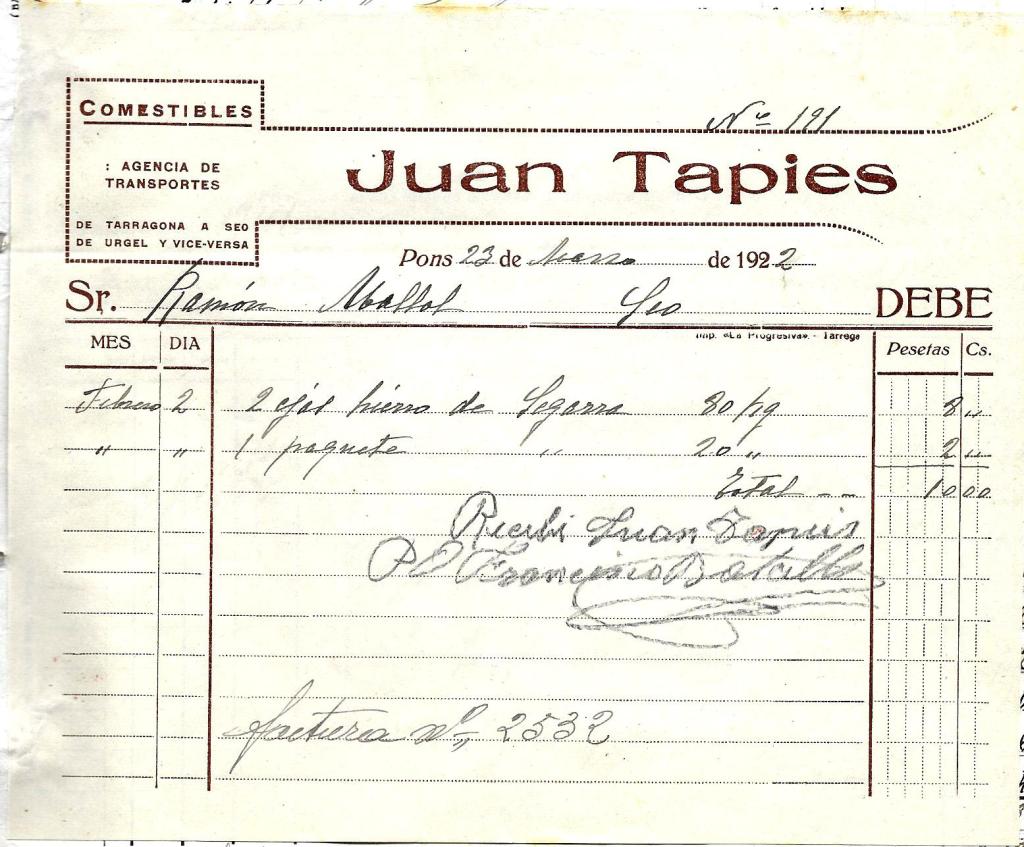 COMESTIBLES
Nº 191
: AGENCIA DE
TRANSPORTES
Juan Tapies
DE TARRAGONA A SEO
DE URGEL Y VICE-VERSA
Pons 23 de Marzo de 1922
Sr. Ramón Seo DEBE
Imp. «La Progresiva». - Tárrega
MES DIA Pesetas Cs.
Febrero 2 2 cjas hierro de Segarra 80 kg 8 "
" " 1 paquete " 20 " 2 "
Total - - 10 00
Recibi Juan Tapies
PO Francisco Batalla
factura nº 2532